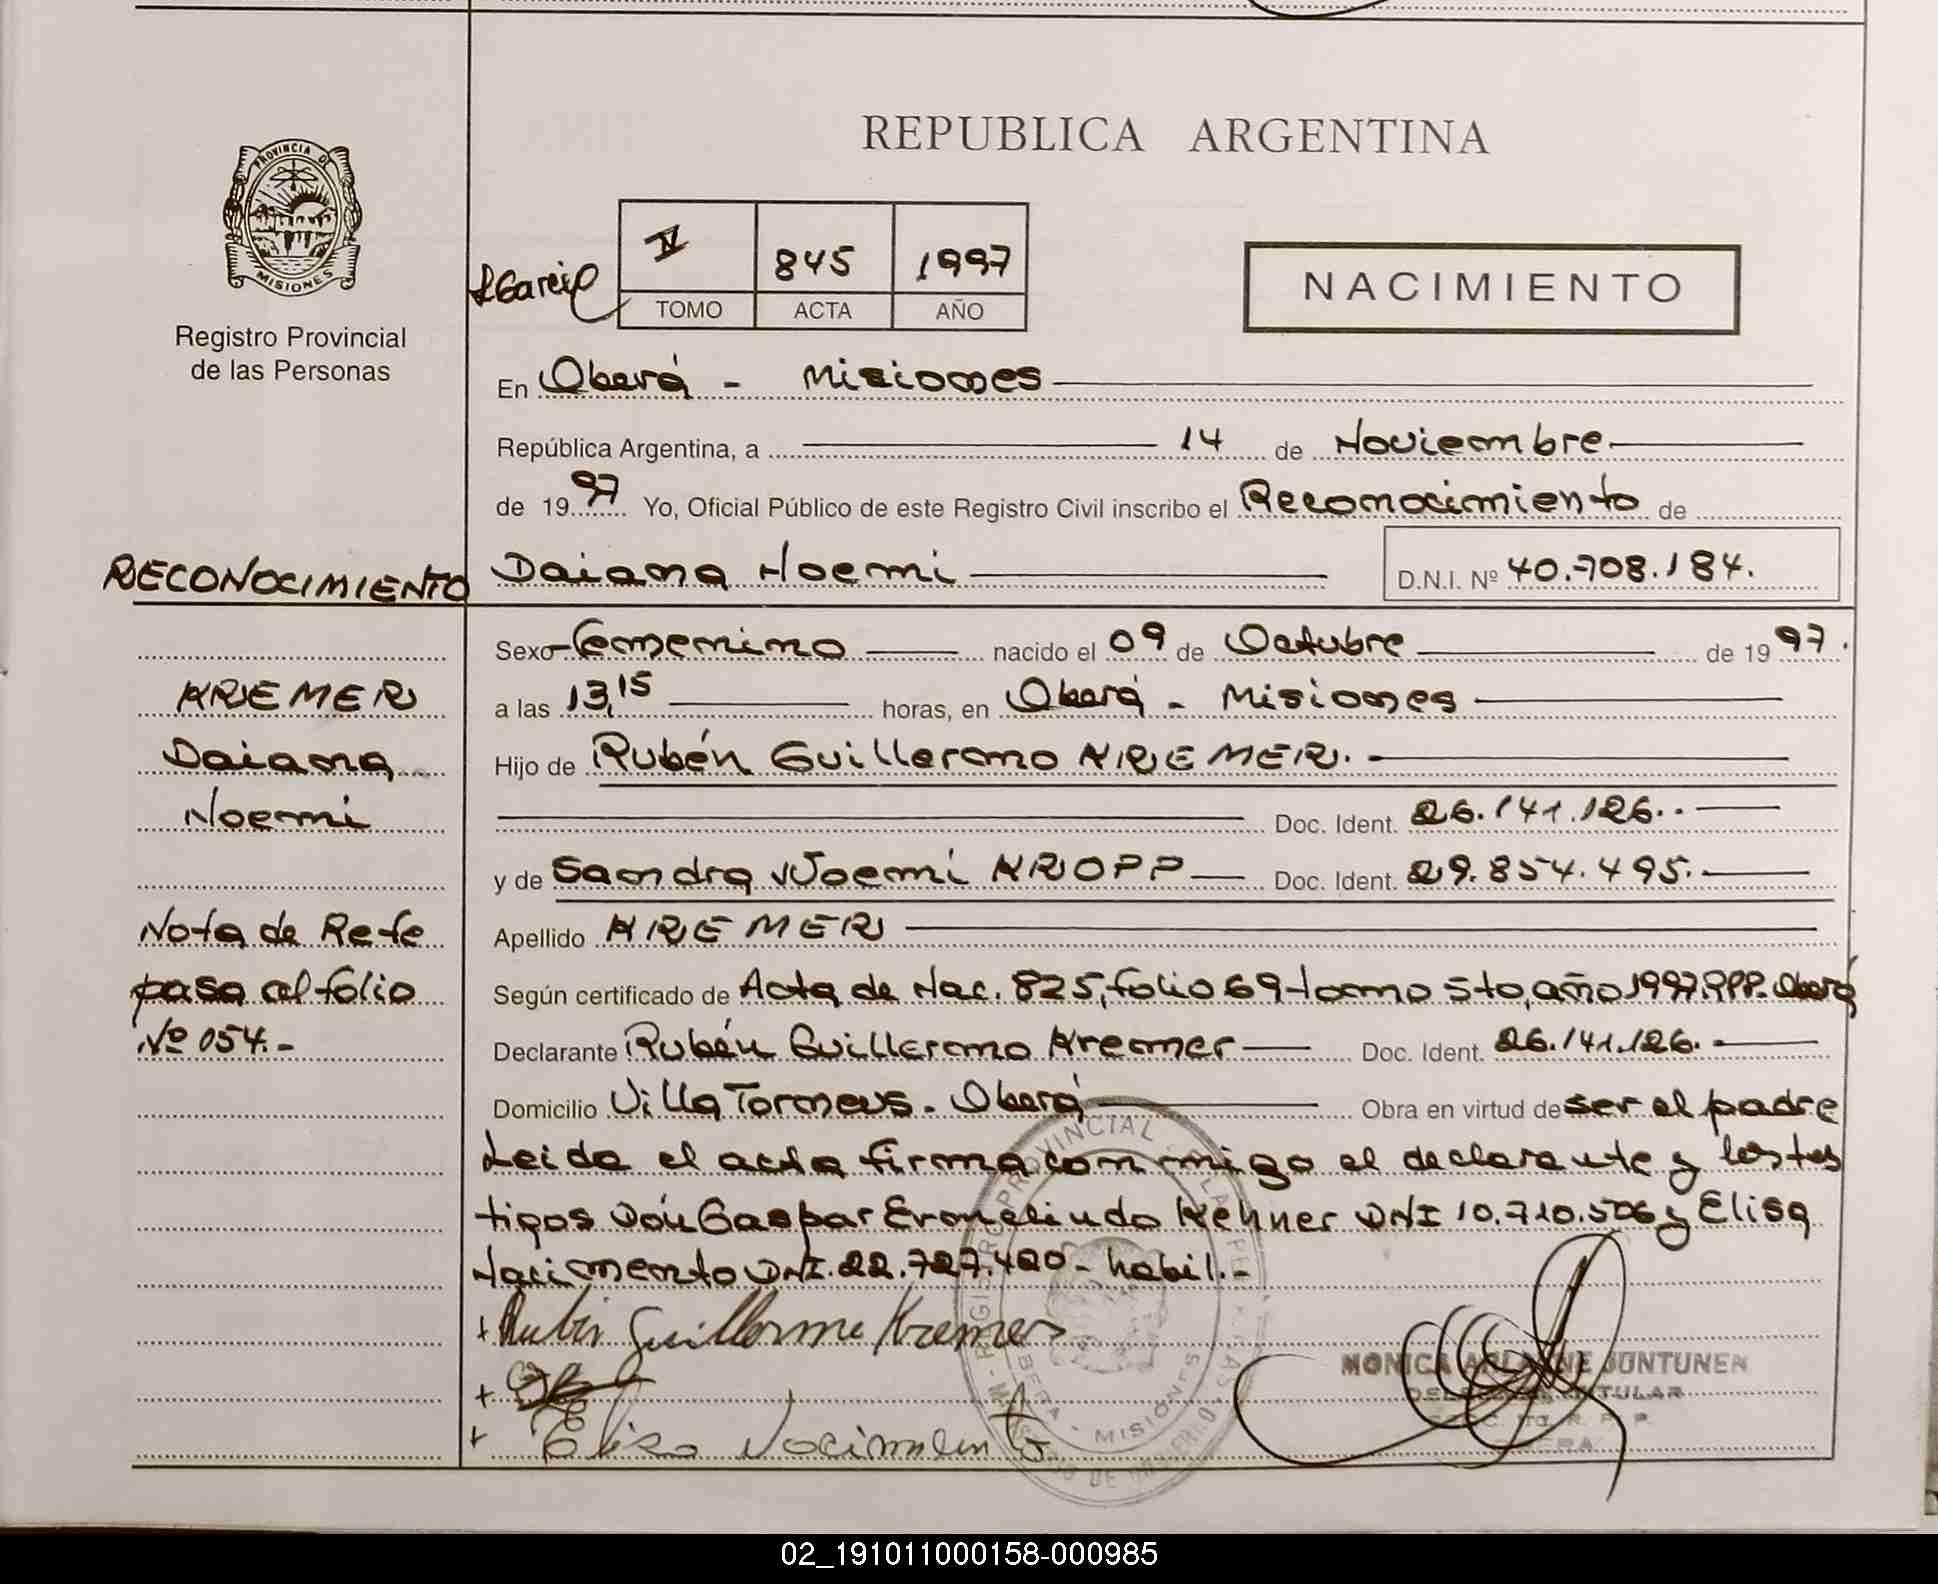 REPUBLICA ARGENTINA
PROVINCIA DE
MISIONES
Registro Provincial
de las Personas
845 1997
TOMO ACTA AÑO
NACIMIENTO
En Oberá - Misiones
República Argentina, a 14 de Noviembre
de 1997 Yo, Oficial Público de este Registro Civil inscribo el Reconocimiento de
RECONOCIMIENTO
Daiana Noemi D.N.I. Nº 40.708.184.
Sexo Femenino nacido el 09 de Octubre de 1997.
KREMER
a las 13,15 horas, en Oberá - Misiones
Daiana
Hijo de Rubén Guillermo KREMER.
Noemi
Doc. Ident. 26.141.126.-
y de Sandra Noemi KROPP Doc. Ident. 29.854.495.-
Nota de Refe
Apellido KREMER
pasa al folio
Según certificado de Acta de Nac. 825, folio 69 tomo 5to, año 1997. RPP. Oberá
Nº 054.-
Declarante Rubén Guillermo Kremer Doc. Ident. 26.141.126.-
Domicilio Villa Torneus. Oberá Obra en virtud de ser el padre
Leida el acta firma conmigo el declarante y los tes
tigos Don Gaspar Ermelindo Kehner DNI 10.710.506 y Elisa
Nacimento DNI. 22.727.420 - habil.-
+ Rubén Guillermo Kremer
+
+ Elisa Nocimento
REGISTRO PROVINCIAL DE LAS PERSONAS
OBERA - MISIONES
MINISTERIO DE GOBIERNO
MONICA JUNTUNEN
TITULAR
OBERA
02_191011000158-000985